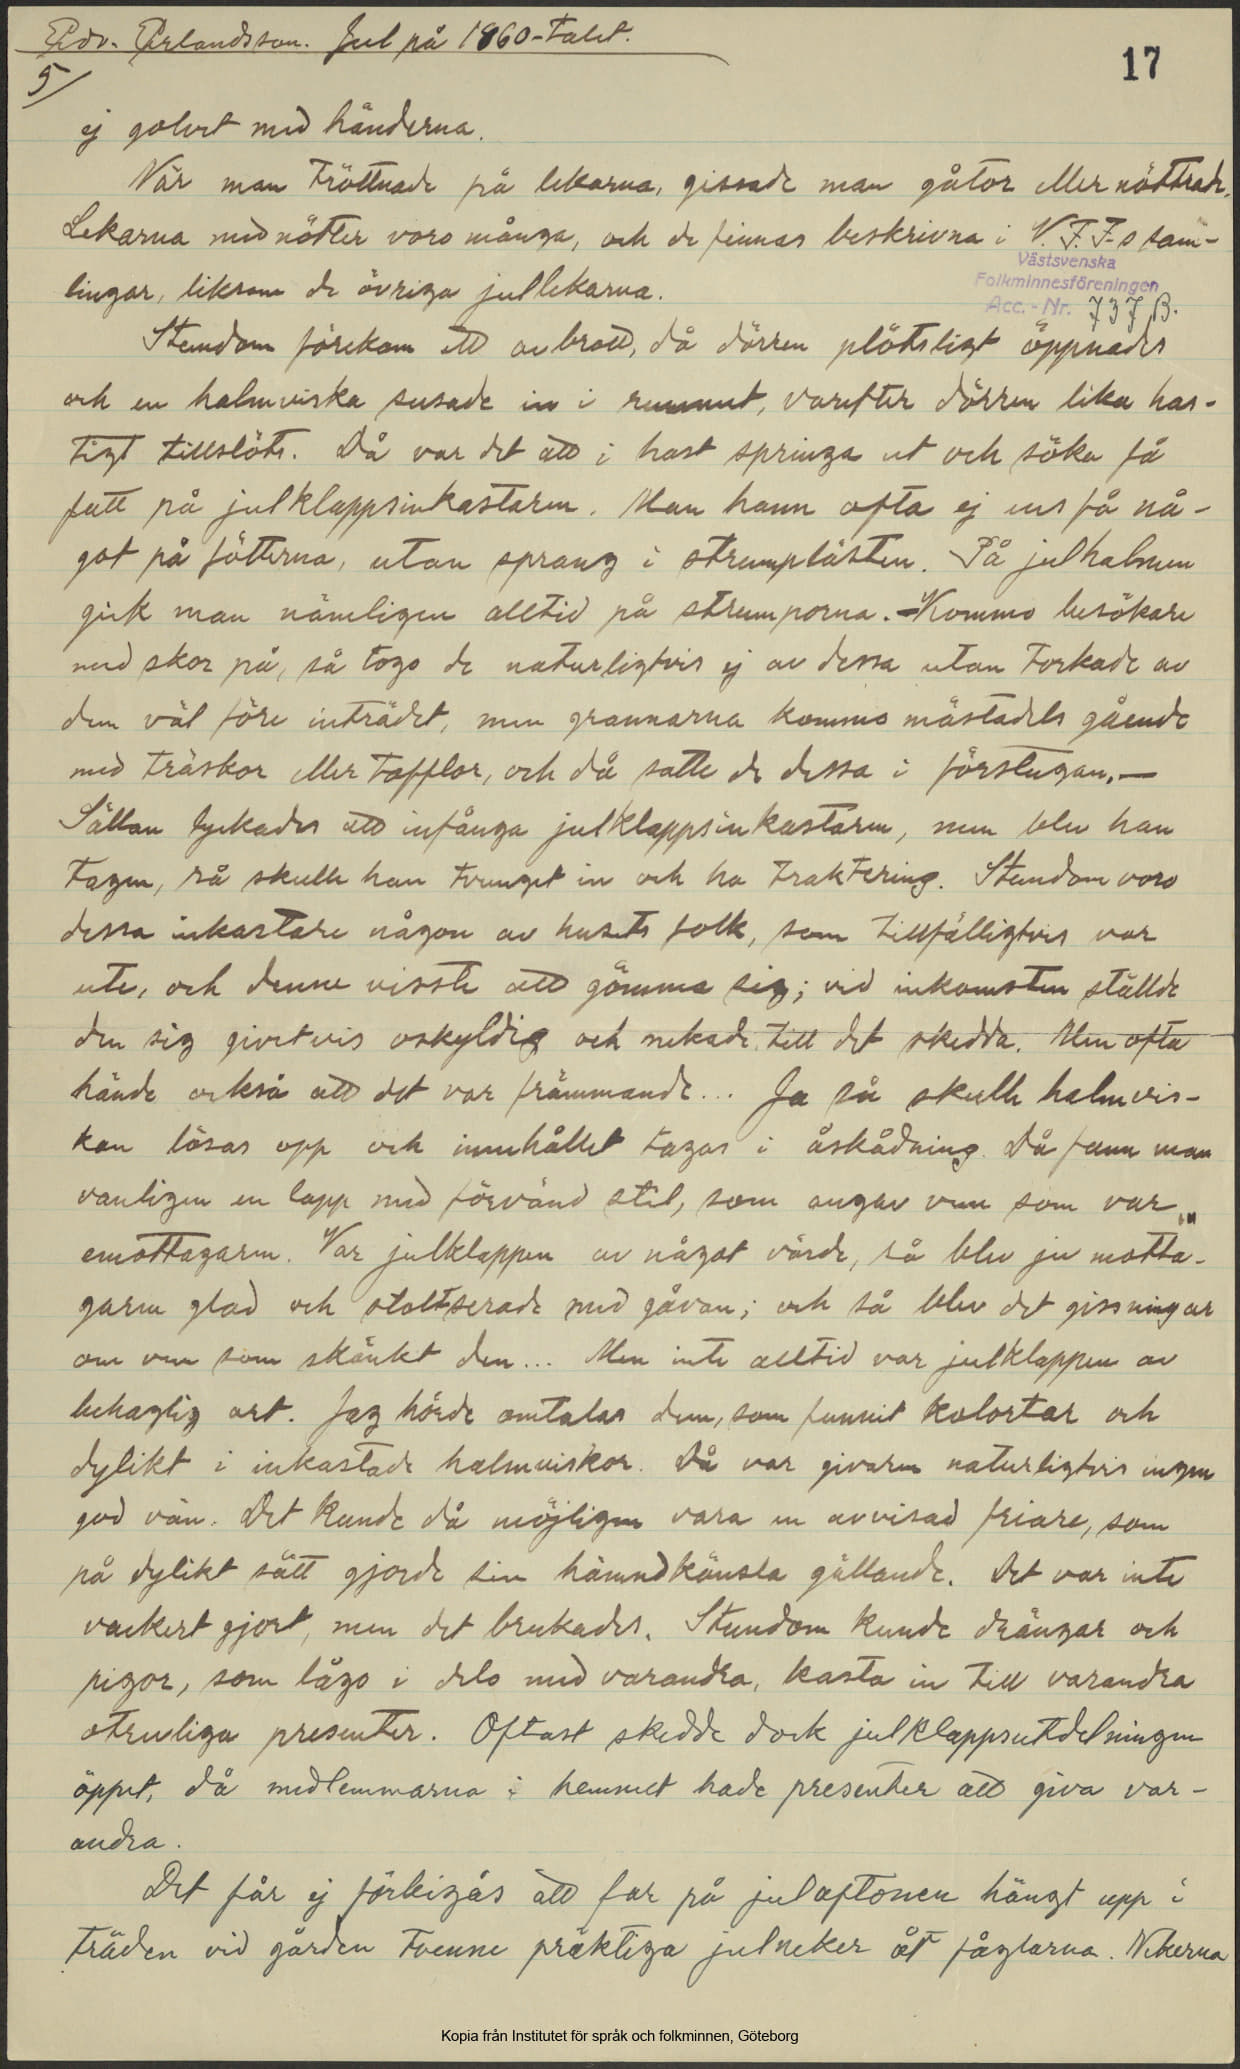 Edv. Erlandsson. Jul på 1860-talet.
17
5/
ej golvet med händerna.
När man tröttnade på lekarna, gissade man gåtor eller nöttrade.
Lekarna med nötter voro många, och de finnas beskrivna i V.F.F-s sam-
Västsvenska
Folkminnesföreningen
Acc.-Nr. 737 B.
lingar, liksom de övriga jullekarna.
Stundom förekom ett avbrott, då dörren plötsligt öppnades
och en halmviska susade in i rummet, varefter dörren lika has-
tigt tillslöts. Då var det att i hast springa ut och söka få
fatt på julklappsinkastaren. Man hann ofta ej ens få nå-
got på fötterna, utan sprang i strumplästen. På julhalmen
gick man nämligen alltid på strumporna. - Kommo besökare
med skor på, så togo de naturligtvis ej av dessa utan torkade av
dem väl före inträdet, men grannarna kommo mästadels gående
med träskor eller tofflor, och då satte de dessa i förstugan. —
Sällan lyckades att infånga julklappsinkastaren, men blev han
tagen, så skulle han tvunget in och ha traktering. Stundom voro
dessa inkastare någon av husets folk, som tillfälligtvis var
ute, och denne visste att gömma sig; vid inkomsten ställde
den sig givetvis oskyldig och nekade till det skedda. Men ofta
hände också att det var främmande... Ja så skulle halmvis-
kan lösas opp och innehållet tagas i åskådning. Då fann man
vanligen en lapp med förvänd stil, som angav vem som var
emottagaren. Var julklappen av något värde, så blev ju motta-
garen glad och stoltserade med gåvan; och så blev det gissningar
om vem som skänkt den... Men inte alltid var julklappen av
behaglig art. Jag hörde omtalas dem, som funnit kolortar och
dylikt i inkastade halmviskor. Då var givaren naturligtvis ingen
god vän. Det kunde då möjligen vara en avvisad friare, som
på dylikt sätt gjorde sin hämndkänsla gällande. Det var inte
vackert gjort, men det brukades. Stundom kunde drängar och
pigor, som lågo i delo med varandra, kasta in till varandra
otrevliga presenter. Oftast skedde dock julklappsutdelningen
öppet, då medlemmarna i hemmet hade presenter att giva var-
andra.
Det får ej förbigås att far på julaftonen hängt upp i
träden vid gården tvenne präktiga julneker åt fåglarna. Nekerna
Kopia från Institutet för språk och folkminnen, Göteborg